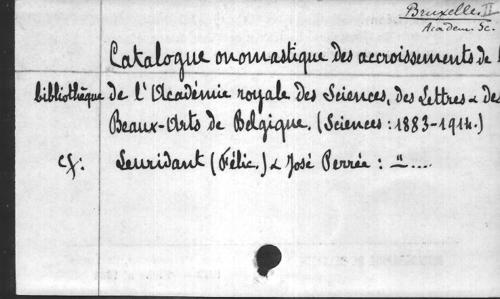 Bruxelles II
Academ. Sc.
Catalogue onomastique des accroissements de
bibliothèque de l'Académie royale des Sciences, des Lettres & des
Beaux-Arts de Belgique. (Sciences: 1883-1914.)
cf: Leuridant (Félic.) & José Perrée: "....